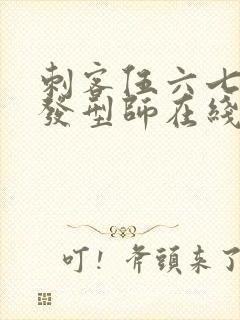 刺客伍六七
發型師在綫
叮！斧頭來了